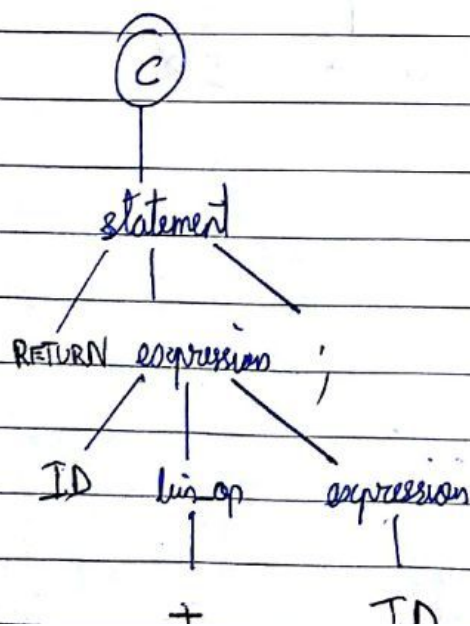 C
statement
RETURN expression ;
ID bin_op expression
+ ID